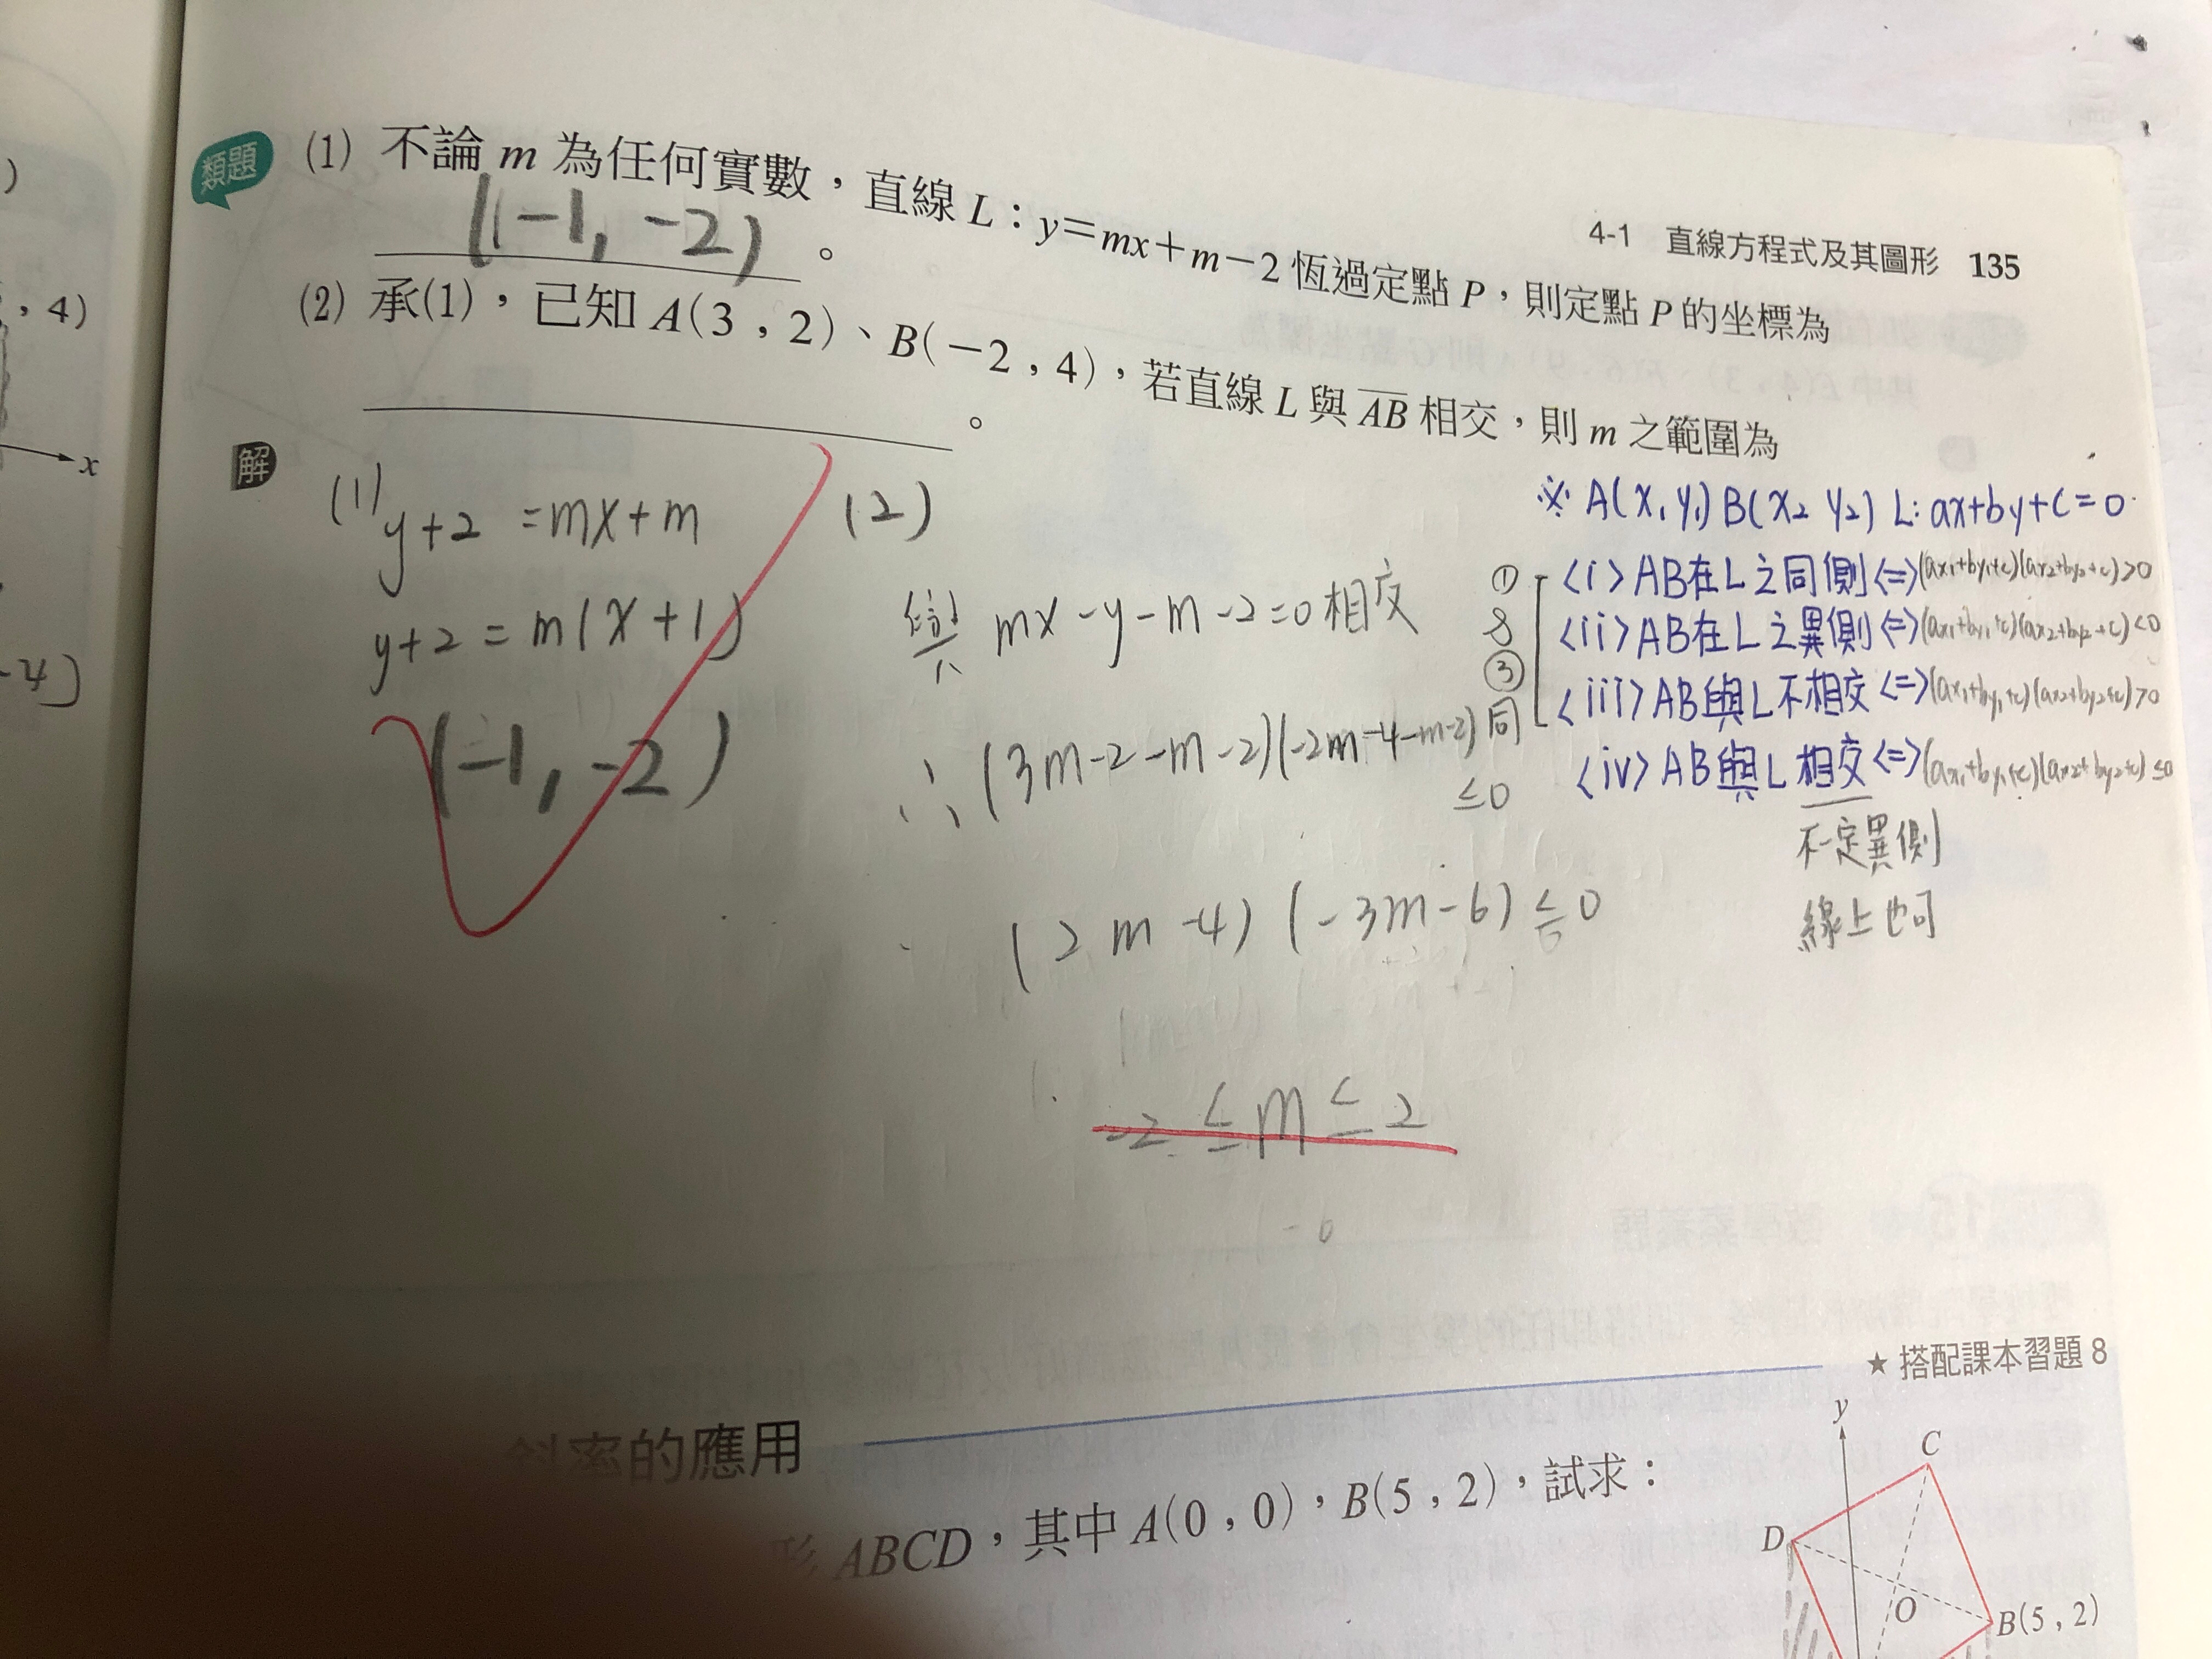 4-1 直線方程式及其圖形 135
類題 (1) 不論 m 為任何實數，直線 L：y＝mx＋m－2 恆過定點 P，則定點 P 的坐標為
(-1, -2) 。
(2) 承(1)，已知 A(3，2)、B(－2，4)，若直線 L 與 AB 相交，則 m 之範圍為
。
解
(1) y+2 = mx+m
y+2 = m(x+1)
(-1, -2)
(2)
mx-y-m-2=0 相交
∴ (3m-2-m-2)(-2m-4-m-2)
≤0
(2m-4)(-3m-6)≤0
-2 ≤ m ≤ 2
-6
※ A(x₁ y₁) B(x₂ y₂) L: ax+by+c=0
<i> AB在L之同側<=>(ax₁+by₁+c)(ax₂+by₂+c)>0
<ii> AB在L之異側<=>(ax₁+by₁+c)(ax₂+by₂+c)<0
<iii> AB與L不相交<=>(ax₁+by₁+c)(ax₂+by₂+c)>0
<iv> AB與L相交<=>(ax₁+by₁+c)(ax₂+by₂+c)≤0
①
&
③
同
不一定異側
線上也可
★ 搭配課本習題 8
斜率的應用
形 ABCD，其中 A(0，0)，B(5，2)，試求：
y
C
D
O
B(5，2)
，4)
x
-4)